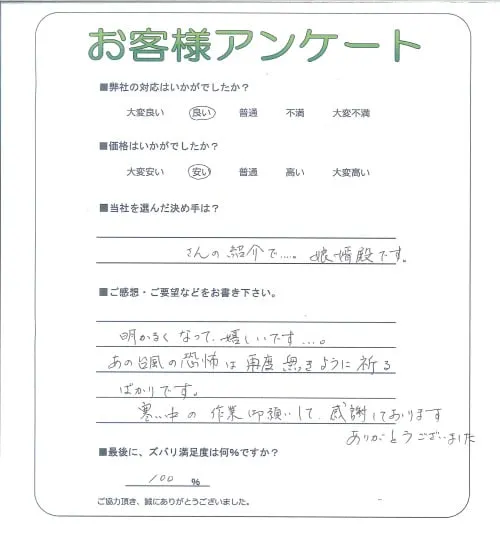 お客様アンケート
■弊社の対応はいかがでしたか?
大変良い 良い 普通 不満 大変不満
■価格はいかがでしたか?
大変安い 安い 普通 高い 大変高い
■当社を選んだ決め手は?
さんの紹介で....。娘婿殿です。
■ご感想・ご要望などをお書き下さい。
明かるくなって、嬉しいです...。
あの台風の恐怖は再度無きように祈る
ばかりです。
寒い中の作業御願いして、感謝しております
ありがとうございました
■最後に、ズバリ満足度は何%ですか?
100 %
ご協力頂き、誠にありがとうございました。